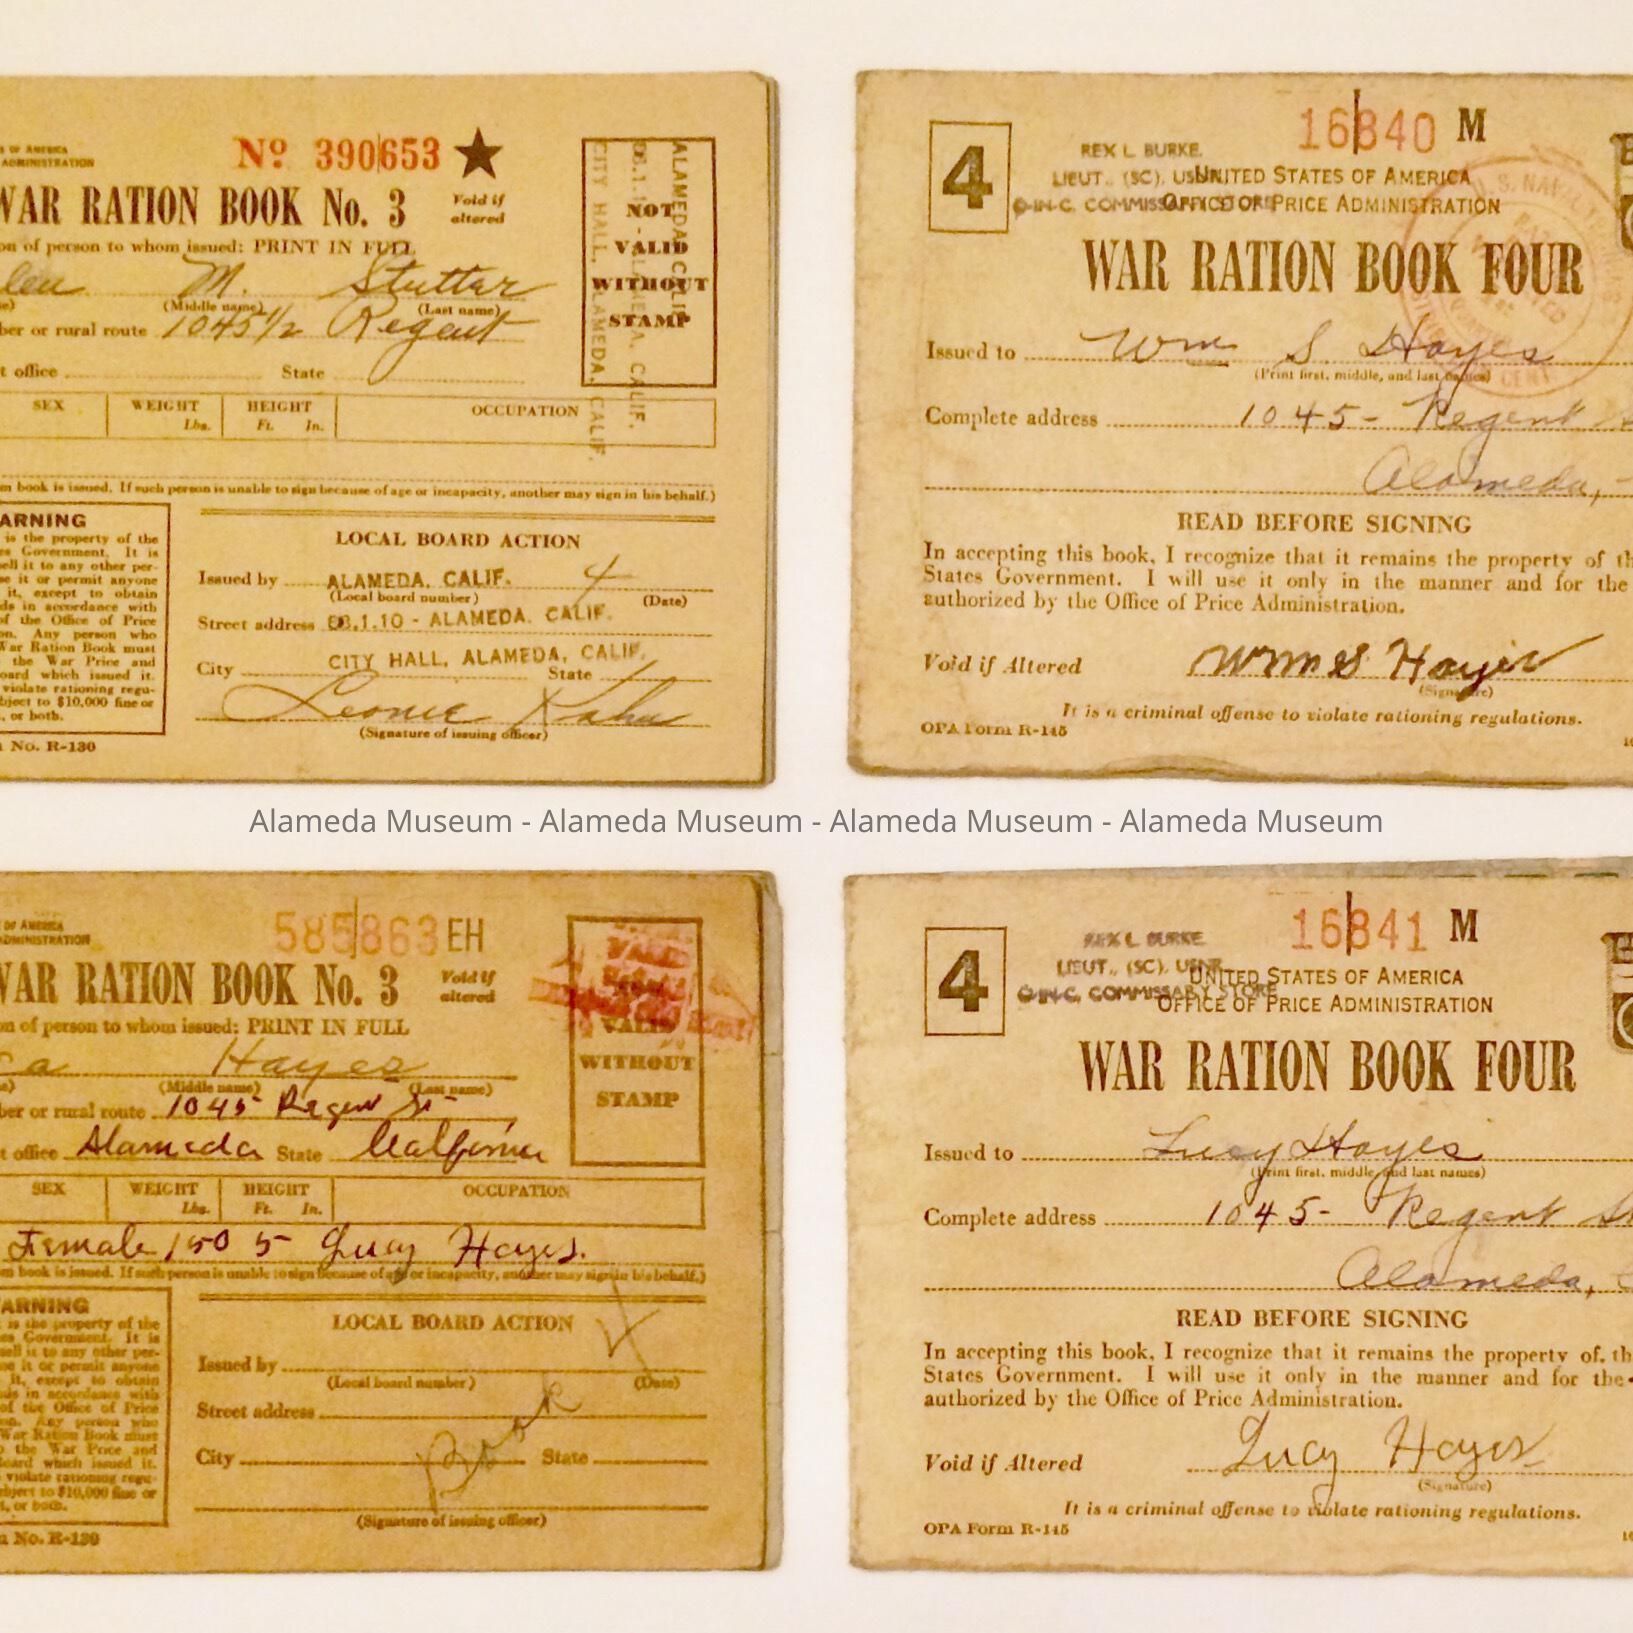 OF AMERICA
ADMINISTRATION
Nº 390653
WAR RATION BOOK No. 3
Void if
altered
on of person to whom issued: PRINT IN FULL
len M. Stuttar
(Middle name)
(Last name)
ber or rural route 1045½ Regent
t office
State
NOT
VALID
WITHOUT
STAMP
ALAMEDA, CALIF.
CITY HALL, ALAMEDA, CALIF.
SEX
WEIGHT
Lbs.
HEIGHT
Ft. In.
OCCUPATION
m book is issued. If such person is unable to sign because of age or incapacity, another may sign in his behalf.)
ARNING
is the property of the
es Government. It is
sell it to any other per-
se it or permit anyone
it, except to obtain
ds in accordance with
of the Office of Price
on. Any person who
War Ration Book must
the War Price and
oard which issued it.
violate rationing regu-
bject to $10,000 fine or
, or both.
No. R-130
LOCAL BOARD ACTION
Issued by ALAMEDA, CALIF. 4
(Local board number)
(Date)
Street address .1.10 - ALAMEDA, CALIF.
City CITY HALL, ALAMEDA, CALIF.
State
Leonie Kahn
(Signature of issuing officer)
4
16840 M
REX L. BURKE
LIEUT., (SC), USNR
O-IN-C, COMMISSARY STORE
UNITED STATES OF AMERICA
OFFICE OF PRICE ADMINISTRATION
WAR RATION BOOK FOUR
Issued to Wm S. Hayes
(Print first, middle, and last names)
Complete address 1045- Regent
Alameda,
READ BEFORE SIGNING
In accepting this book, I recognize that it remains the property of th
States Government. I will use it only in the manner and for the
authorized by the Office of Price Administration.
Void if Altered Wm S Hayes
(Signature)
It is a criminal offense to violate rationing regulations.
OPA Form R-145
Alameda Museum - Alameda Museum - Alameda Museum - Alameda Museum
OF AMERICA
ADMINISTRATION
585863 EH
WAR RATION BOOK No. 3
Void if
altered
on of person to whom issued: PRINT IN FULL
Hayes
(Middle name)
(Last name)
ber or rural route 1045 Regent St
t office Alameda State California
VALID
WITHOUT
STAMP
SEX
WEIGHT
Lbs.
HEIGHT
Ft. In.
OCCUPATION
Female 150 5 Lucy Hayes.
m book is issued. If such person is unable to sign because of age or incapacity, another may sign in his behalf.)
ARNING
is the property of the
es Government. It is
sell it to any other per-
se it or permit anyone
it, except to obtain
ds in accordance with
of the Office of Price
on. Any person who
War Ration Book must
the War Price and
oard which issued it.
violate rationing regu-
bject to $10,000 fine or
, or both.
No. R-130
LOCAL BOARD ACTION
Issued by
(Local board number)
(Date)
Street address
City
State
(Signature of issuing officer)
4
16841 M
REX L. BURKE
LIEUT., (SC), USNR
O-IN-C, COMMISSARY STORE
UNITED STATES OF AMERICA
OFFICE OF PRICE ADMINISTRATION
WAR RATION BOOK FOUR
Issued to Lucy Hayes
(Print first, middle, and last names)
Complete address 1045- Regent St
Alameda,
READ BEFORE SIGNING
In accepting this book, I recognize that it remains the property of th
States Government. I will use it only in the manner and for the
authorized by the Office of Price Administration.
Void if Altered Lucy Hayes
(Signature)
It is a criminal offense to violate rationing regulations.
OPA Form R-145